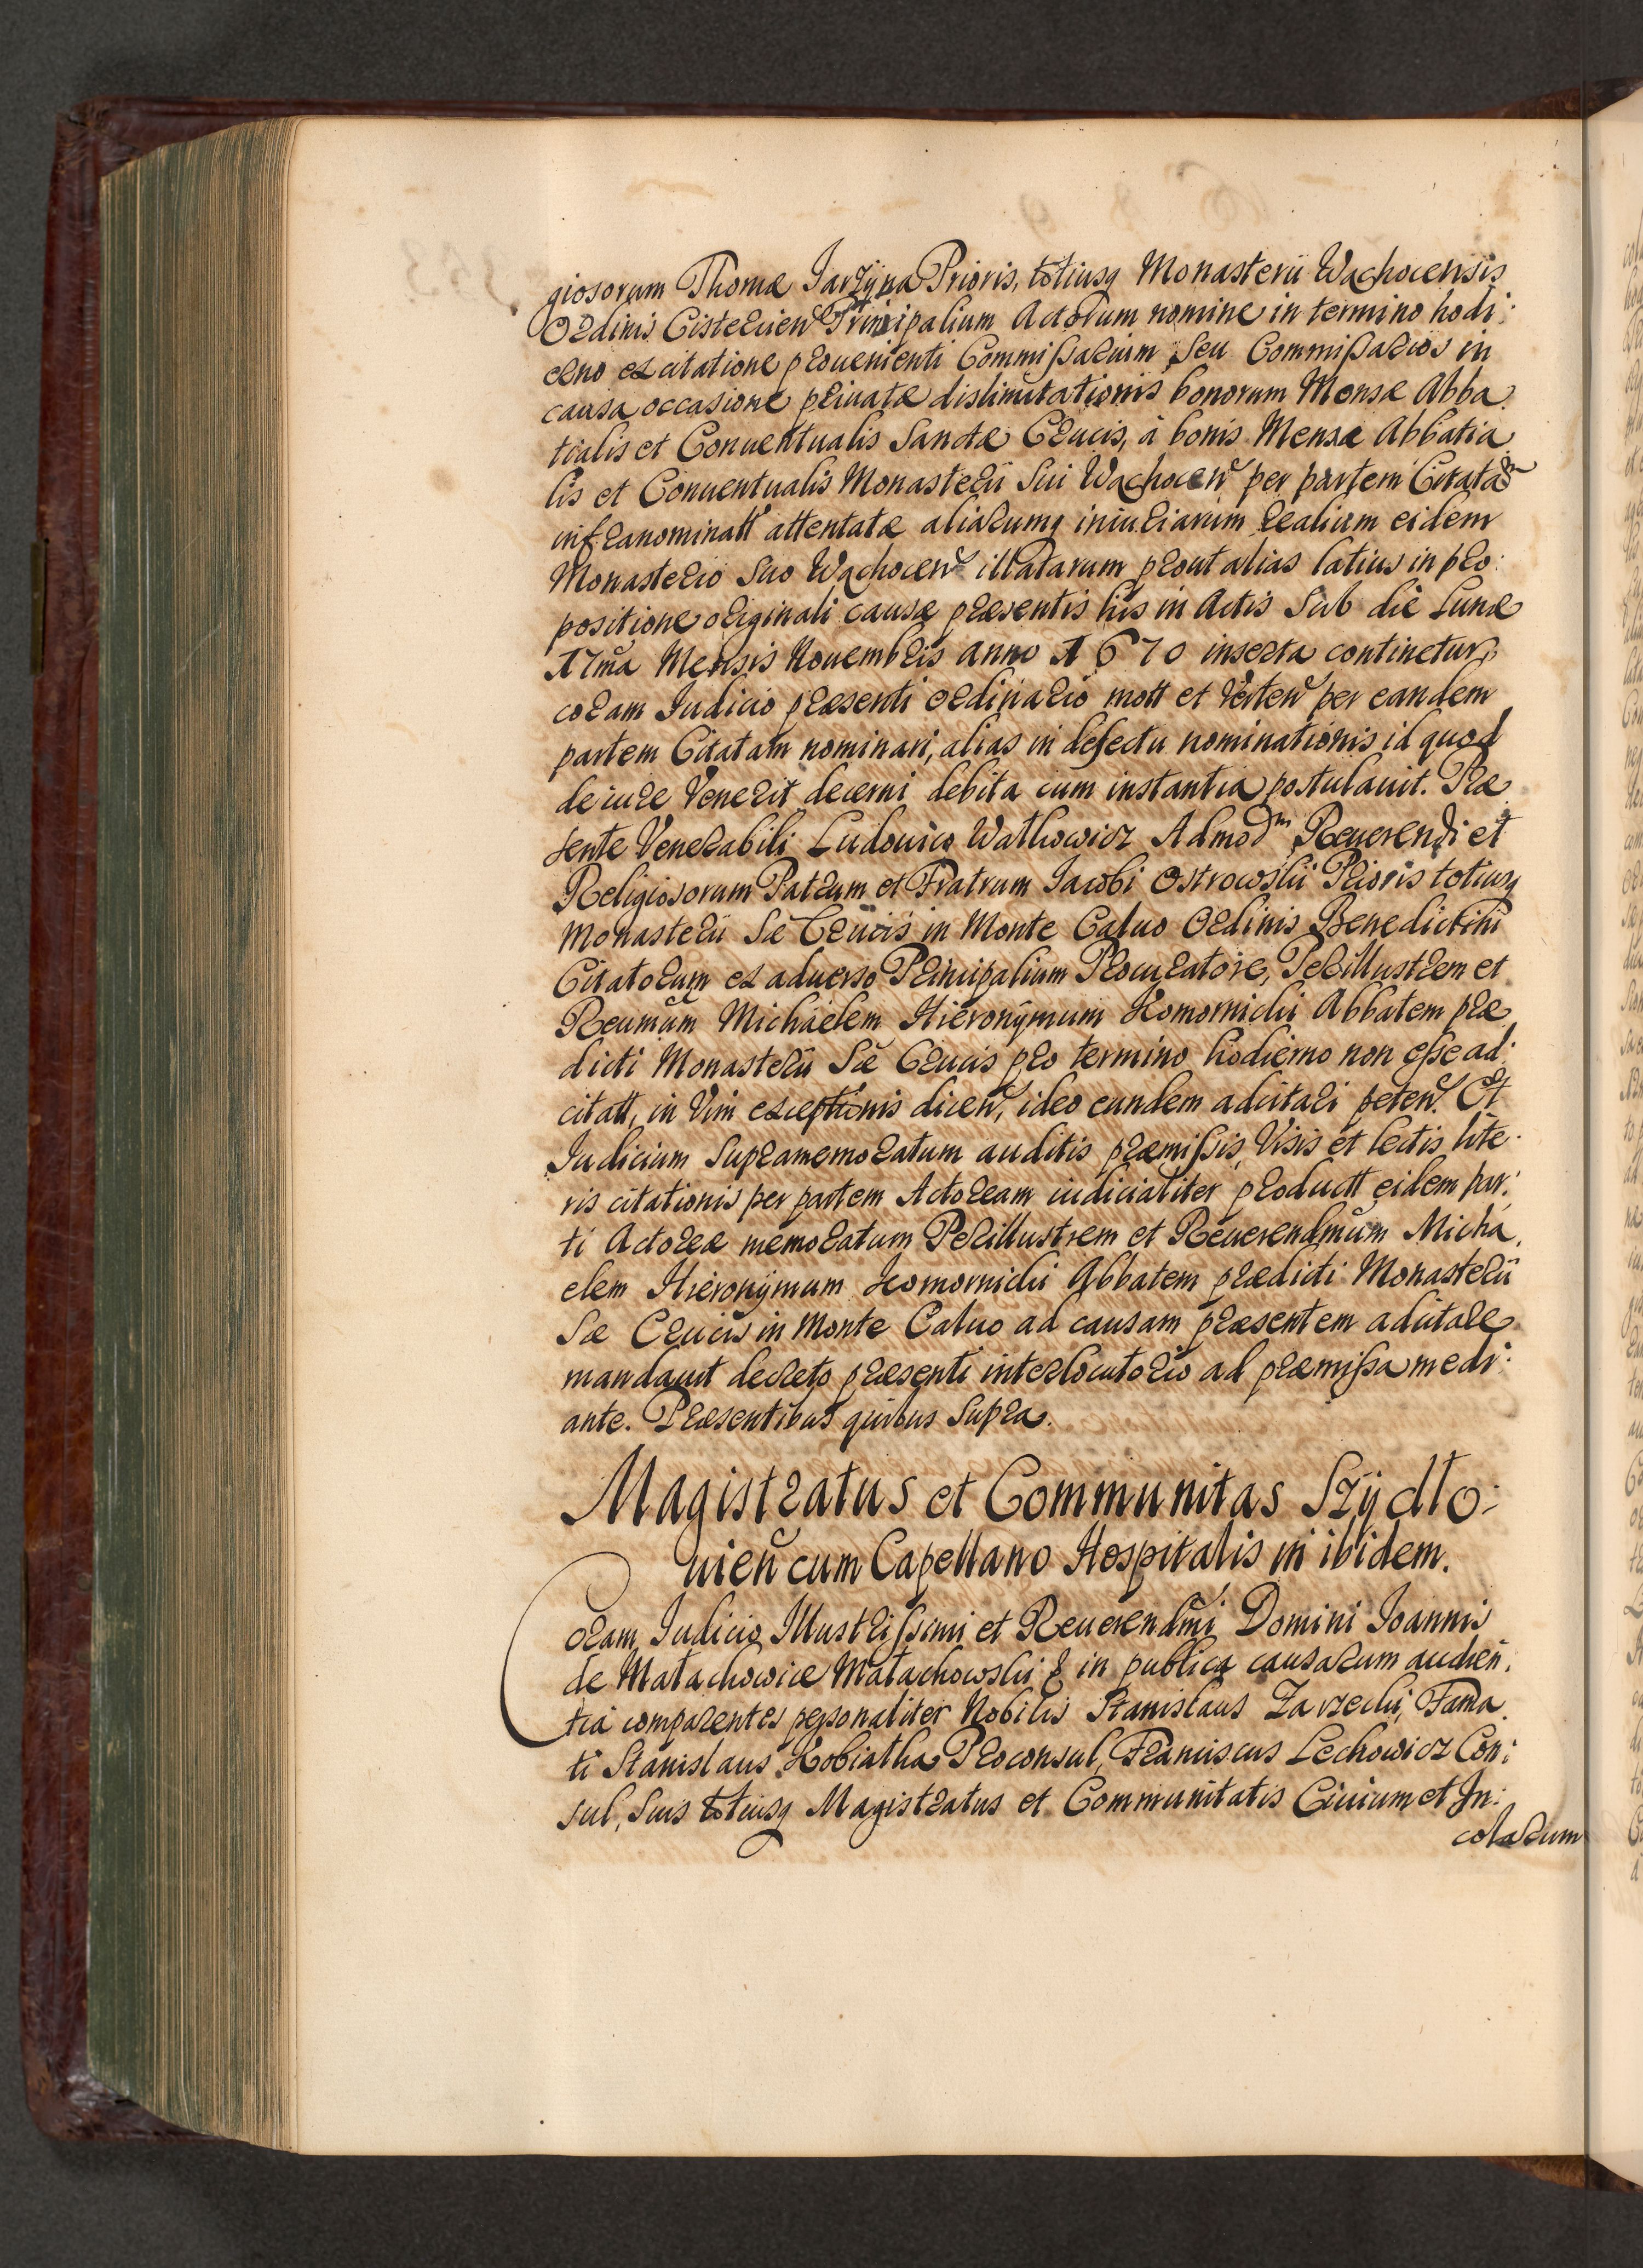 giosorum Thomæ Jarzÿna Prioris, totiusq Monasterii Wąchocensis
Ordinis Cistercien Principalium Actorum nomine in termino hodi:
erno ex citatione proueniēnti Commissarium seu Commissarios in
causa occasione priuatæ dislimitationis bonorum Mensæ Abba
tialis et Conuentualis Sanctæ Crucis, à bonis Mensæ Abbatia
lis et Conuentualis Monasterii sui Wąchocen per partem Citatam
infranominatt attentatæ aliarumq iniuriarum realium eidem
Monasterio suo Wąchocen illatarum prout alias latius in pro:
positione originali causæ præsentis his in Actis sub die Lunæ
17ma Mensis Nouembris anno 1670 inserta continetur,
coram Judicio præsenti ordinario mott et verten per eandem
partem Citatam nominari, alias in defectu nominationis id quod
de iure venerit decerni debita cum instantia postulauit. Præ
sente Venerabili Ludouico Watkowicz Admodm Reuerendi et
Religiosorum Patrum et Fratrum Jacobi Ostrowskii Prioris totiusq
Monasterii Sæ Crucis in Monte Caluo Ordinis Benedictini
Citatorum ex aduerso Principalium Procuratore, Perillustrem et
Reumum Michaelem Hieronÿmum Komornicki Abbatem præ
dicti Monasterii Sæ Crucis pro termino hodierno non esse ad:
citatt, in vim exceptionis dicen, ideo eundem adcitari peten. Et
Judicium supramemoratum auditis præmissis, visis et lectis lite:
ris citationis per partem Actoream iudicialiter productt eidem par:
ti Actoreæ memoratum Perillustrem et Reuerendmum Micha
elem Hieronÿmum Komornicki Abbatem prædicti Monasterii
Sæ Crucis in Monte Caluo ad causam præsentem adcitare
mandauit decreto præsenti interlocutorio ad præmissa medi:
ante. Præsentibus quibus supra.
Magistratus et Communitas Szÿdło:
uien cum Capellano Hospitalis in ibidem.
Coram Judicio Illustrissimi et Reuerendmi Domini Joannis
de Małachowice Małachowski & in publica causarum audien:
tia comparentes personaliter Nobilis Stanislaus Zarzecki, Fama
ti Stanislaus Kobiałka Proconsul, Franciscus Lechowicz Con:
sul, suis totiusq Magistratus et Communitatis Ciuium et In:
colarum